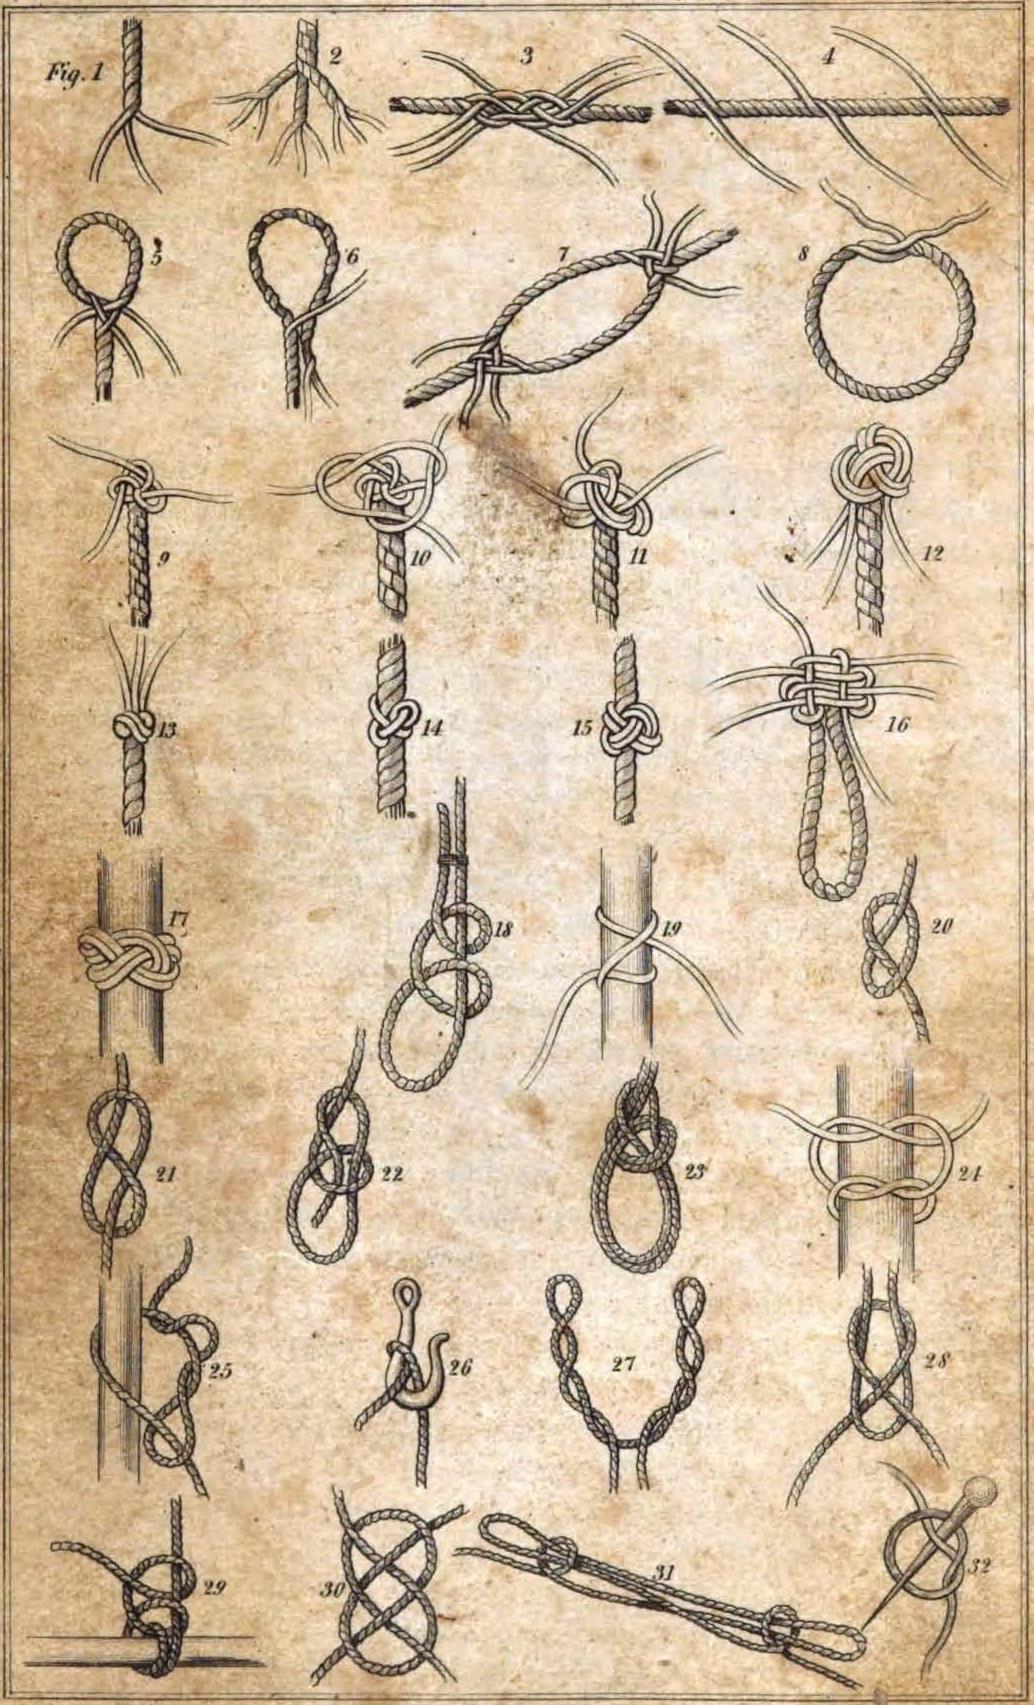 Fig. 1
2
3
4
5
6
7
8
9
10
11
12
13
14
15
16
17
18
19
20
21
22
23
24
25
26
27
28
29
30
31
32